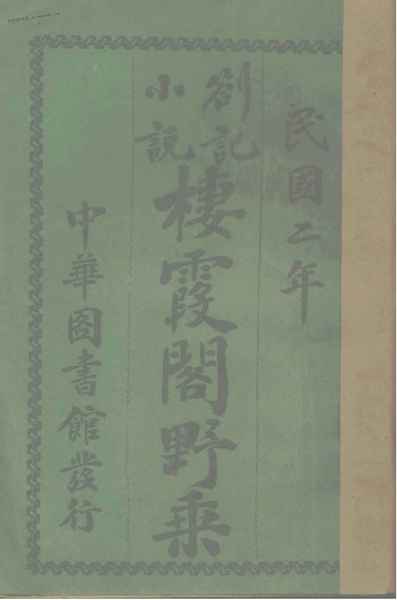 民國二年
劄記小說
棲霞閣野乘
中華圖書館發行